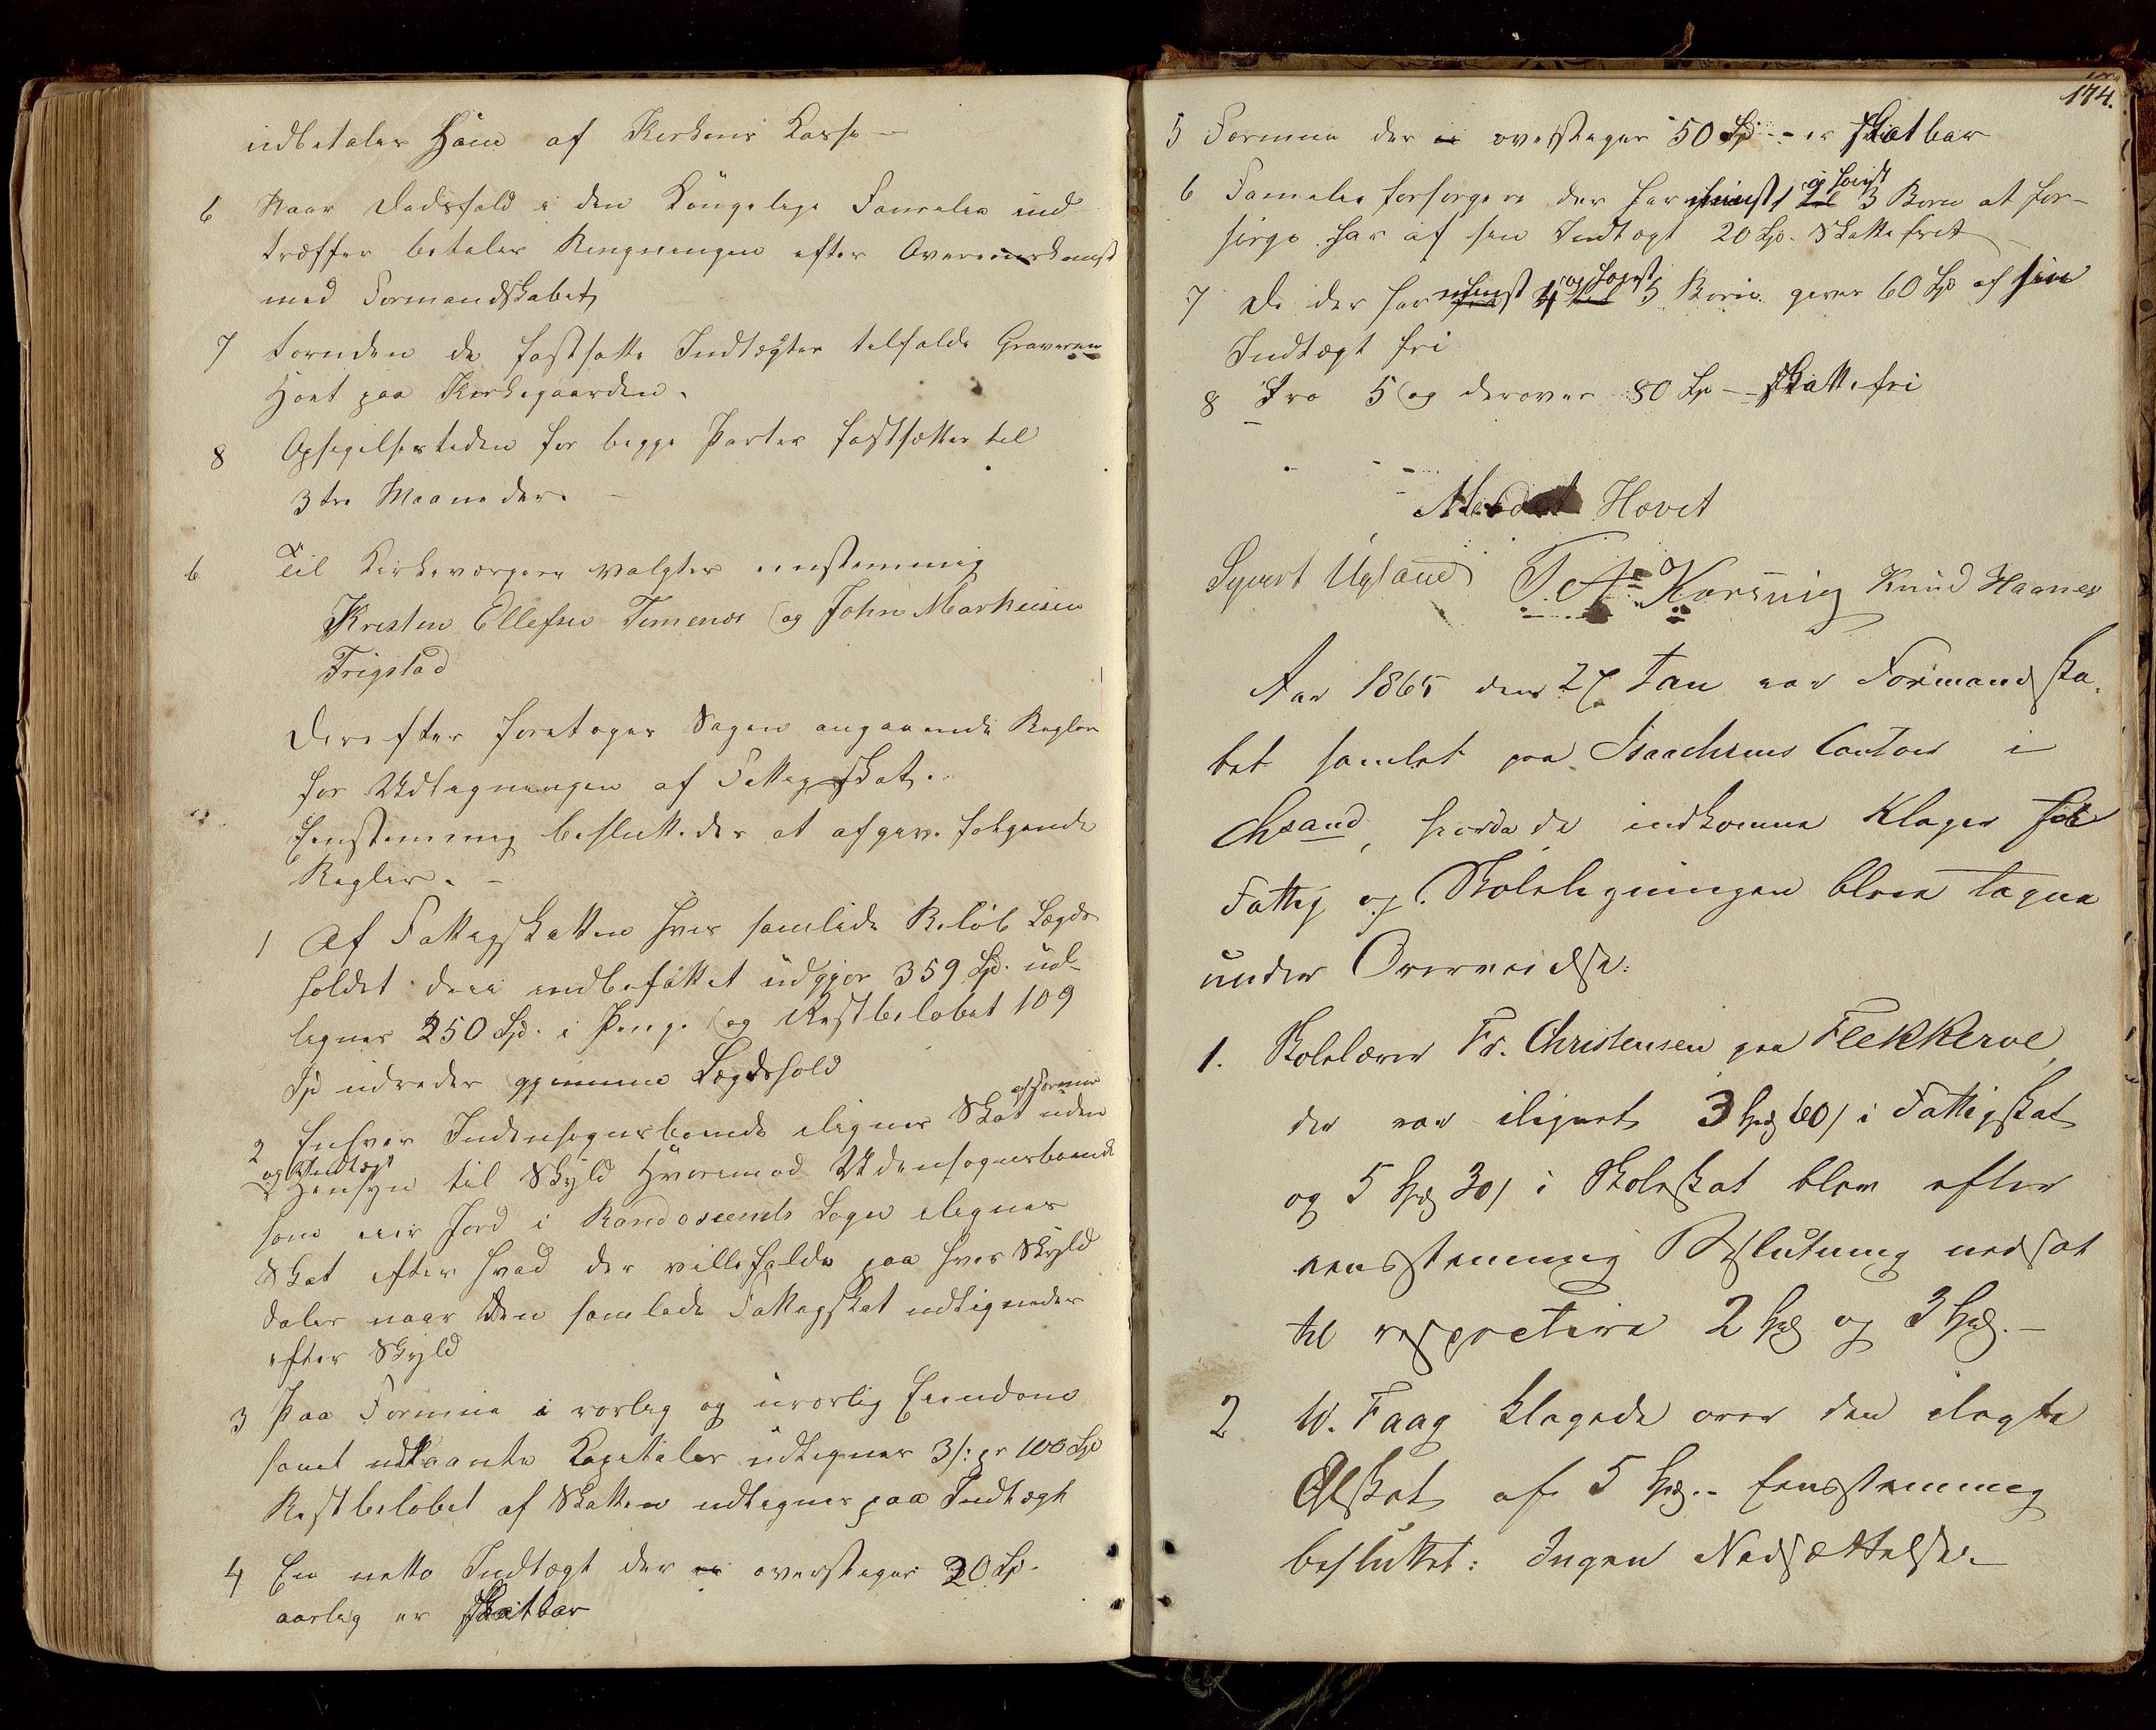 indbetales ham af Kirkens Kasse –
6 Naar Dødsfald i den Kongelige Familie ind-
træffer betales Ringningen efter Overeenskomst
med Formandskabet
7 foruden de fastsatte Indtægter tilfalde Graveren
Høet paa Kirkegaarden.
8 Opsigelsestiden for begge Parter fastsættes til
3 tre Maaneder. –
6 Til Kirkeværgere valgtes eenstemmig
Kristen Ellefsen Timenes og John Markusen
Frigstad
Derefter foretoges Sagen angaaende Regler
for Udligningen af Fattigskat.
Eenstemmig besluttedes at afgive følgende
Regler. –
1 Af Fattigskatten hvis samlede Beløb Lægds
holdet deri indbefattet udgjør 359 Spd. ud-
lignes 250 Spd. i Penge og Restbeløbet 109
Spd udredes gjennem Lægdshold
2 Enhver Indensognsboende ilignes Skat af Formue uden
og Indtægt
Hensyn til Skyld Hvorimod Udensognsboende
som eier Jord i Randøsunds Sogn ilignes
Skat efter hvad der vilde falde paa hver Skyld
daler naar den samlede Fattigskat udlignedes
efter Skyld
3 Paa Formue i rørlig og urørlig Eiendom
samt udlaante Kapitaler udlignes 3 s: pr 100 Spd
Restbeløbet af Skatten udlignes paa Indtægt
4 En netto Indtægt der ei overstiger 20 Sp.
aarlig er skatbar
174.
5 Formue der ei overstiger 50 Spd – er skatbar
6 Familieforsørgere der har mindst 2 og høist 3 Børn at for-
sørge har af sin Indtægt 20 Sp. Skattefrit
7 De der har mindst 4 og høist 5 Børn giver 60 Sp af sin
Indtægt fri
8 Fra 5 og derover 80 Sp – skattefri
Hovet
Syvert Ugland T. A. Korsvig Knud Haanes
Aar 1865 den 27 Jan var Formandska-
bet samlet paa Isaachsens Contoir i
Chsand, hvorda de indkomne Klager
Fattig og Skoleligningen bleve tagne
under Overveielse:
1. Skolelærer Fr. Christensen paa Flekkerøe,
der var ilignet 3 Spd 60 s i Fattigskat
og 5 Spd 30 s i Skoleskat blev efter
eensstemmig Beslutning nedsat
til respective 2 Spd og 3 Spd. –
2 W. Faag klagede over den ilagte
Ølskat af 5 Spd. – Eensstemmig
besluttet: Ingen Nedsættelse. –